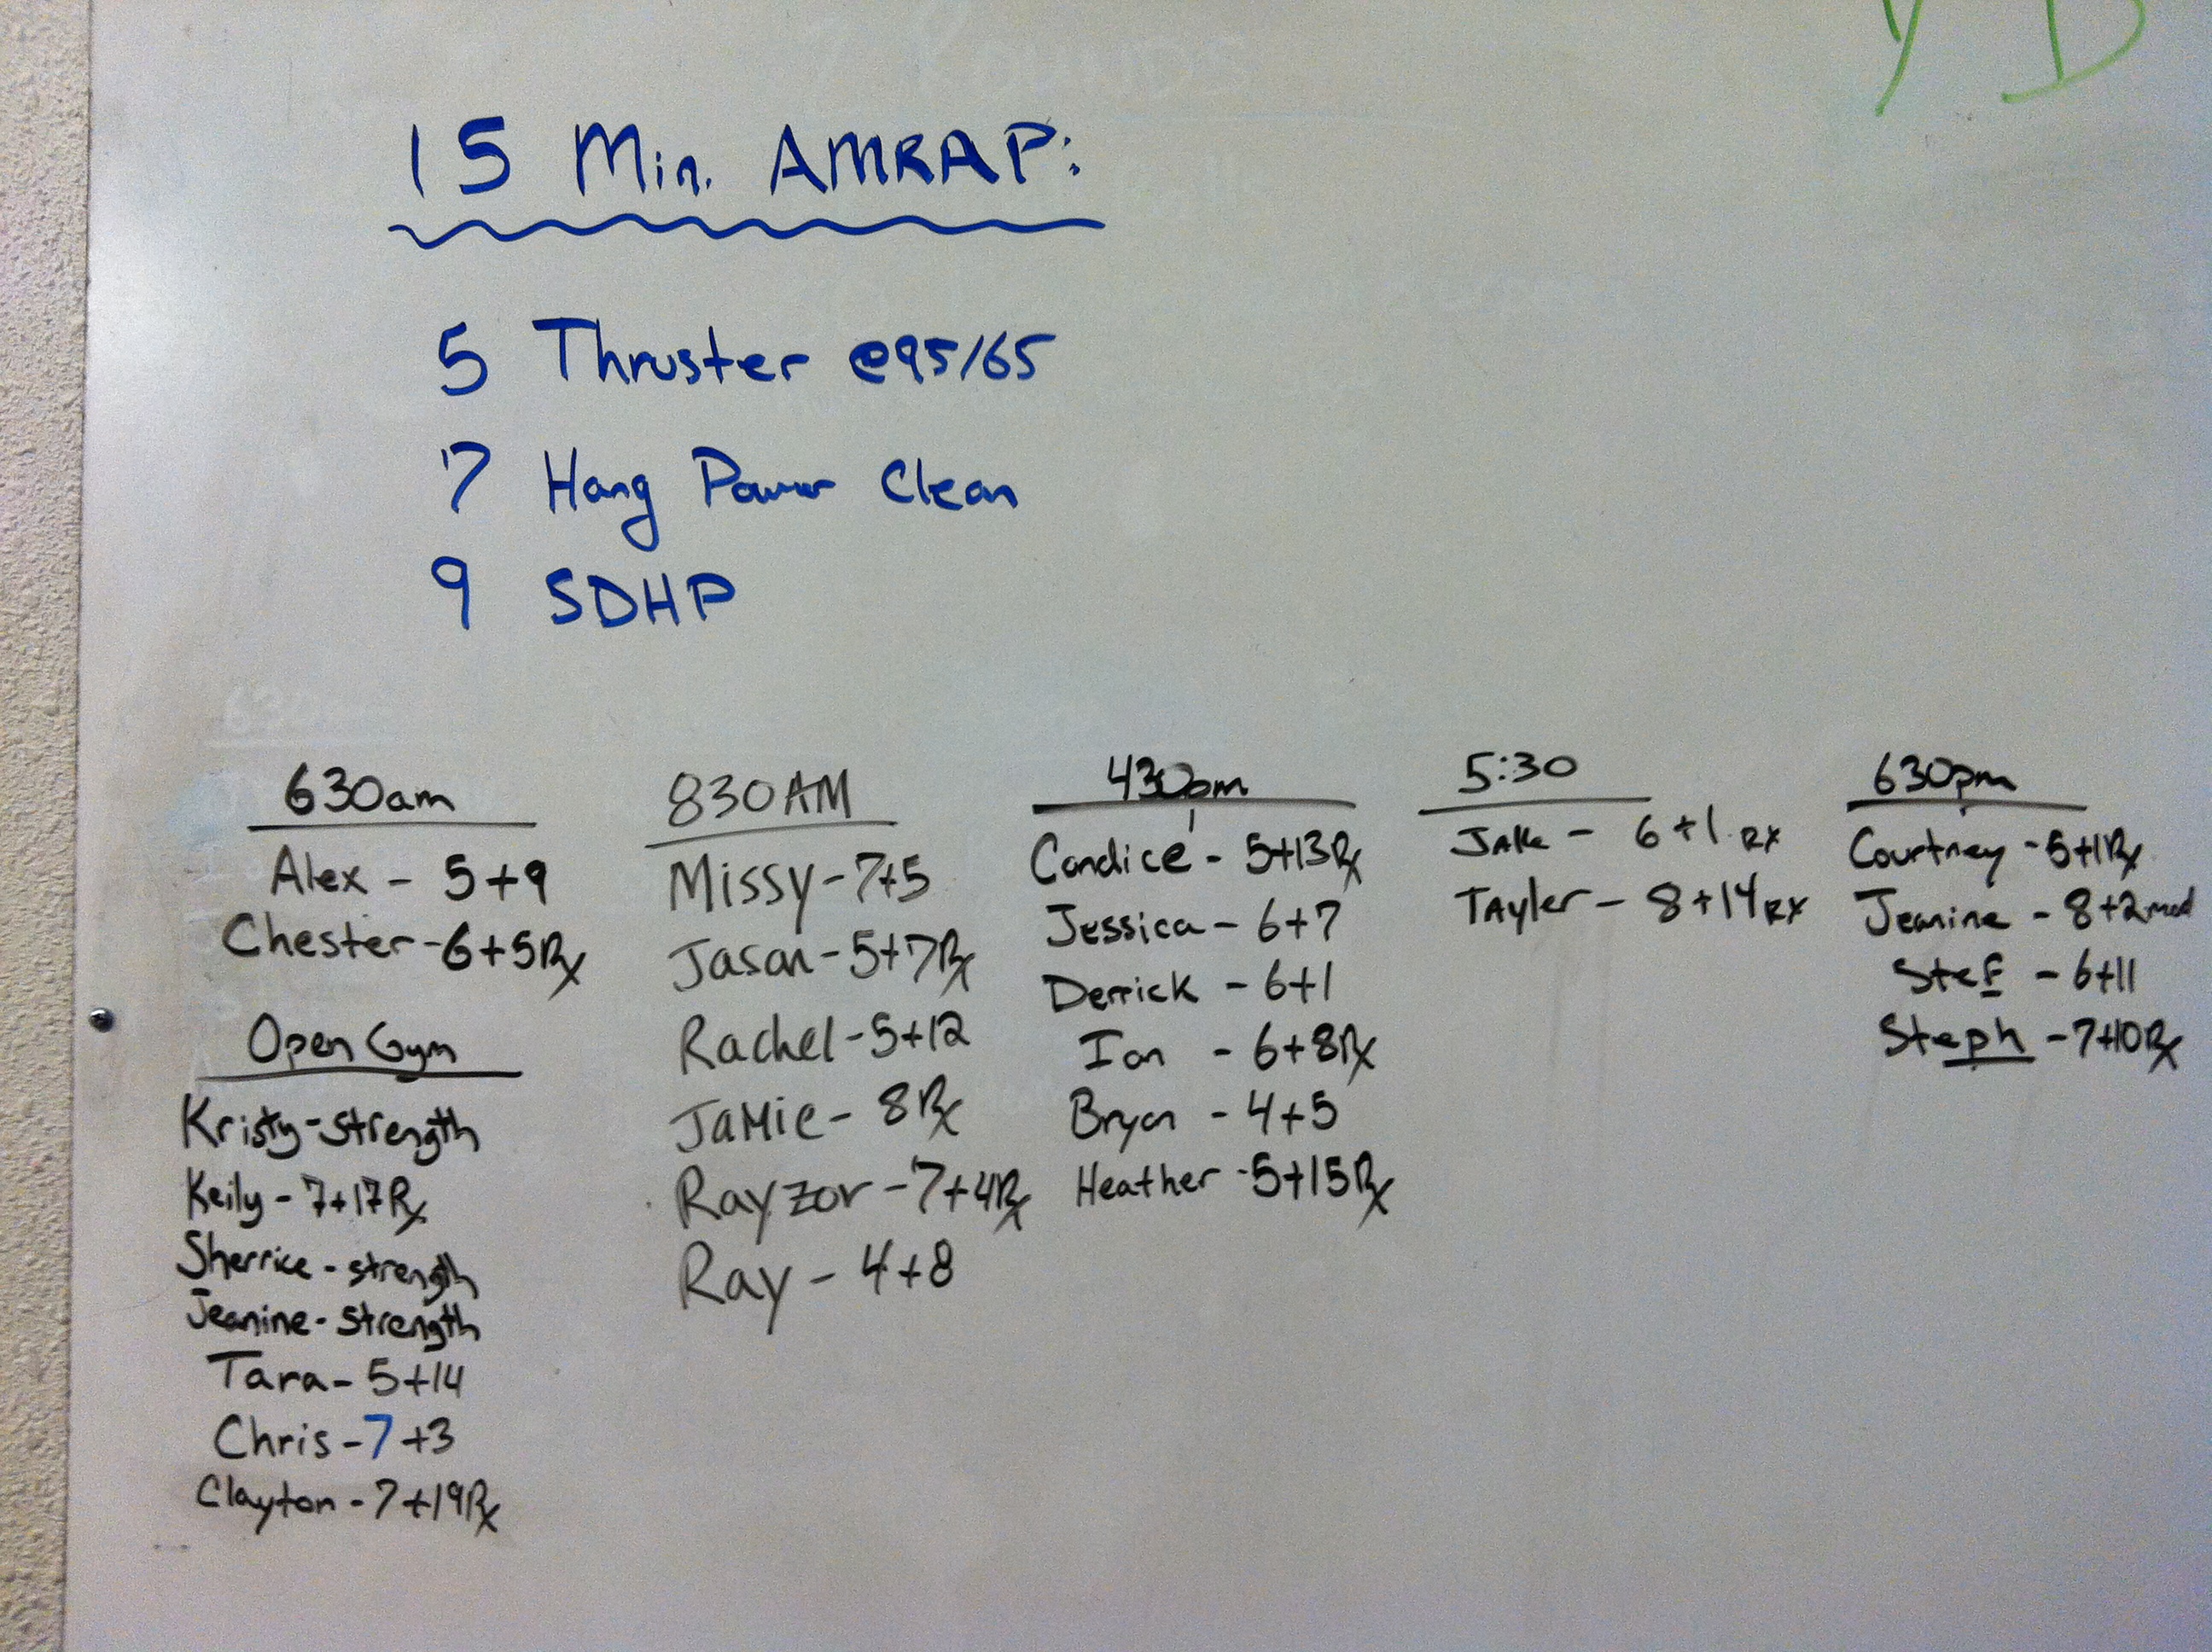 15 Min. AMRAP:
5 Thruster @95/65
7 Hang Power Clean
9 SDHP
630am
Alex - 5+9
Chester - 6+5Rx
Open Gym
Kristy - Strength
Keily - 7+17Rx
Sherrice - strength
Jeanine - Strength
Tara - 5+14
Chris - 7+3
Clayton - 7+19Rx
830AM
Missy - 7+5
Jason - 5+7Rx
Rachel - 5+12
Jamie - 8Rx
Rayzor - 7+4Rx
Ray - 4+8
430pm
Candice - 5+13Rx
Jessica - 6+7
Derrick - 6+1
Ian - 6+8Rx
Bryan - 4+5
Heather - 5+15Rx
5:30
Jake - 6+1 RX
Tayler - 8+14 RX
630pm
Courtney - 5+1Rx
Jeanine - 8+2 mod
Stef - 6+11
Steph - 7+10Rx